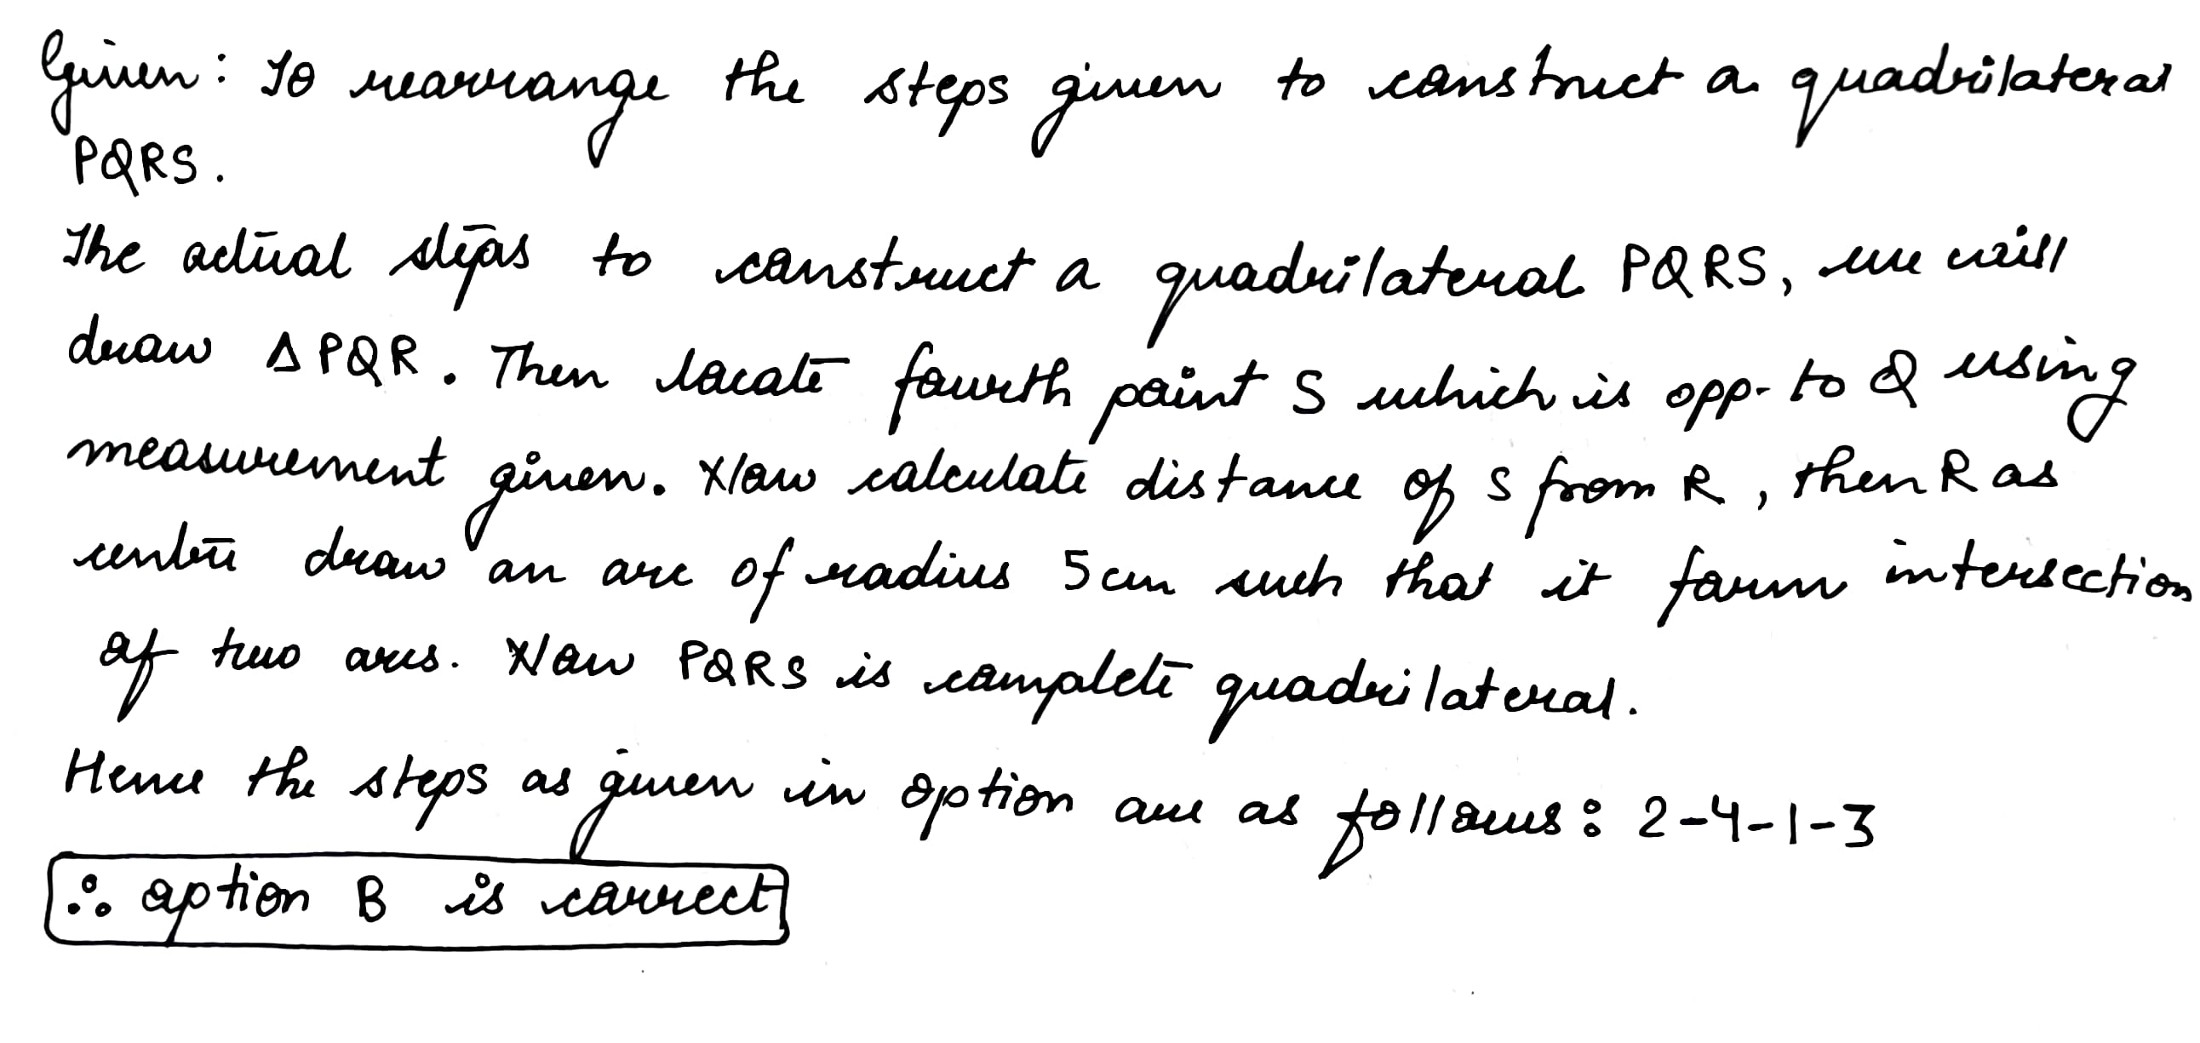 Given: To rearrange the steps given to construct a quadrilateral
PQRS.
The actual steps to construct a quadrilateral PQRS, we will
draw Δ PQR. Then locate fourth point S which is opp. to Q using
measurement given. Now calculate distance of S from R, then R as
centre draw an arc of radius 5cm such that it form intersection
of two arcs. Now PQRS is complete quadrilateral.
Hence the steps as given in option are as follows: 2-4-1-3
∴ option B is correct